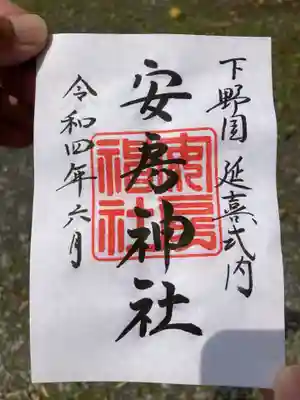 下野国 延喜式内
安房神社
令和四年六月